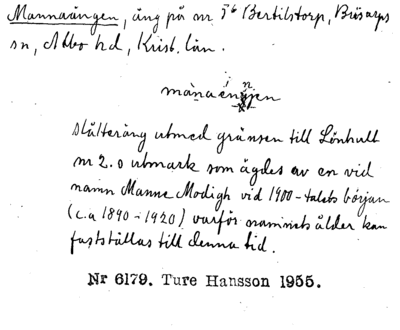 Mannaängen, äng på nr 5⁶ Bertilstorp, Brösarps
sn, Albo hd, Krist. län.
slåtteräng utmed gränsen till Lönhult
nr 2.0 utmark som ägdes av en vid
namn Manne Modigh vid 1900-talets början
(c.a 1890-1920) varför namnets ålder kan
fastställas till denna tid.
Nr 6179. Ture Hansson 1955.